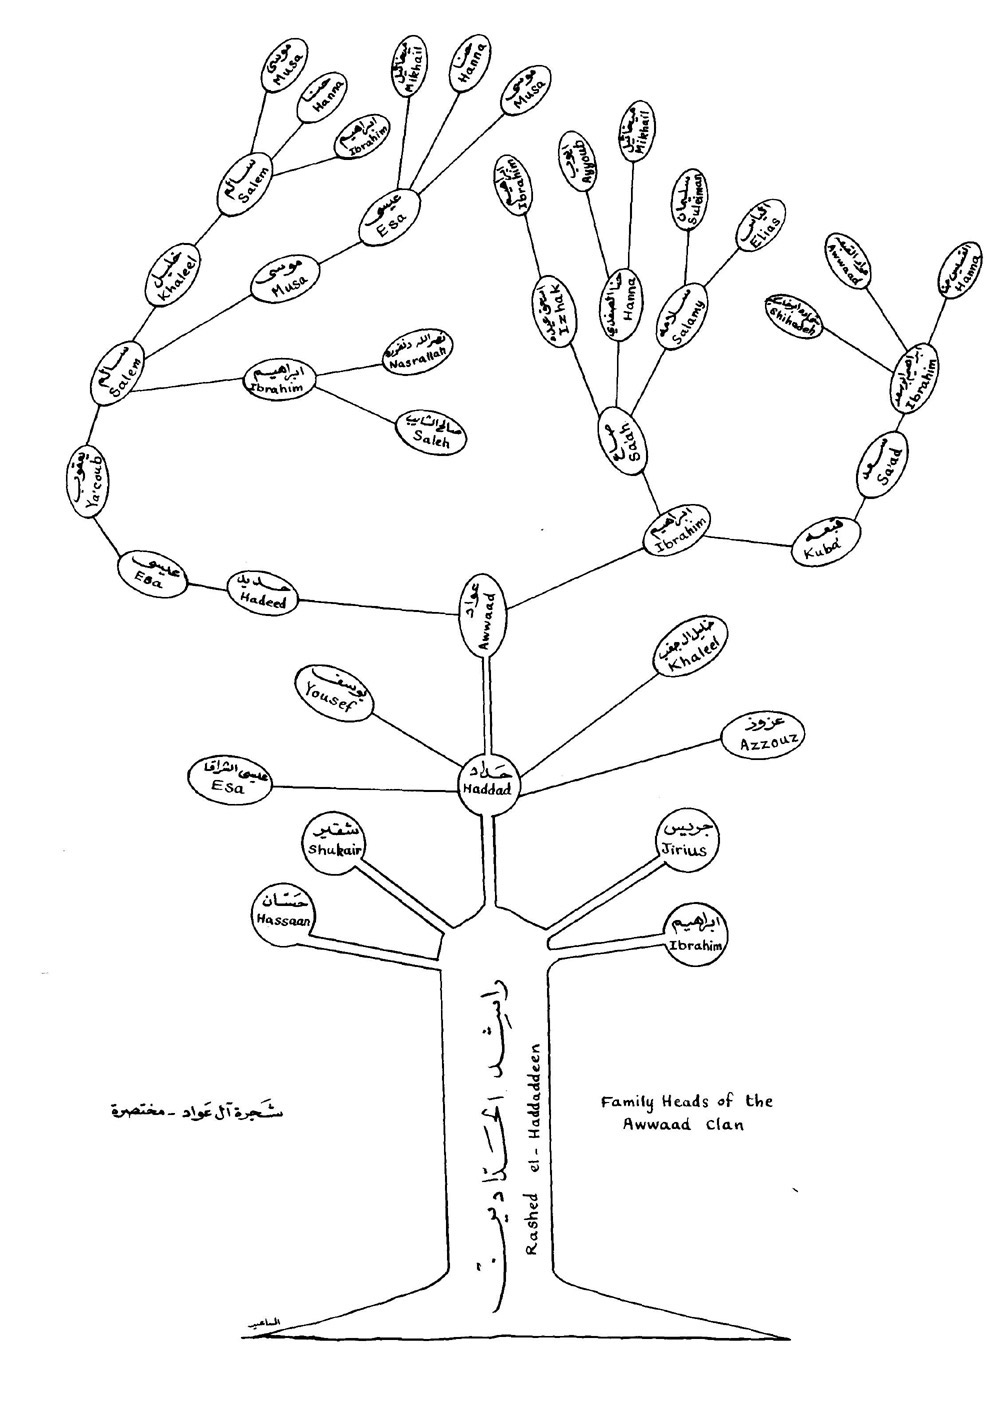 موسى
Musa
حنا
Hanna
ابراهيم
Ibrahim
ميخائيل
Mikhail
حنا
Hanna
موسى
Musa
سالم
Salem
عيسى
Esa
خليل
Khaleel
موسى
Musa
سالم
Salem
ابراهيم
Ibrahim
نصرالله
Nasrallah
صالح الشايب
Saleh
يعقوب
Ya'coub
عيسى
Esa
حديد
Hadeed
ابراهيم
Ibrahim
ايوب
Ayyoub
ميخائيل
Mikhail
سليمان
Suleiman
الياس
Elias
Izhak
حنا
Hanna
سلامه
Salamy
صباح
Saah
ابراهيم
Ibrahim
Awwaad
Shihadeh
Hanna
Ibrahim
سعد
Sa'ad
قبعه
Kuba'
عواد
Awwaad
يوسف
Yousef
خليل
Khaleel
عيسى الشراقا
Esa
عزوز
Azzouz
حَدّاد
Haddad
شقير
Shukair
جريس
Jirius
حسّان
Hassaan
ابراهيم
Ibrahim
راشد الحدّادين
Rashed el-Haddaddeen
شَجرة آل عَواد - مختصرة
Family Heads of the
Awwaad Clan